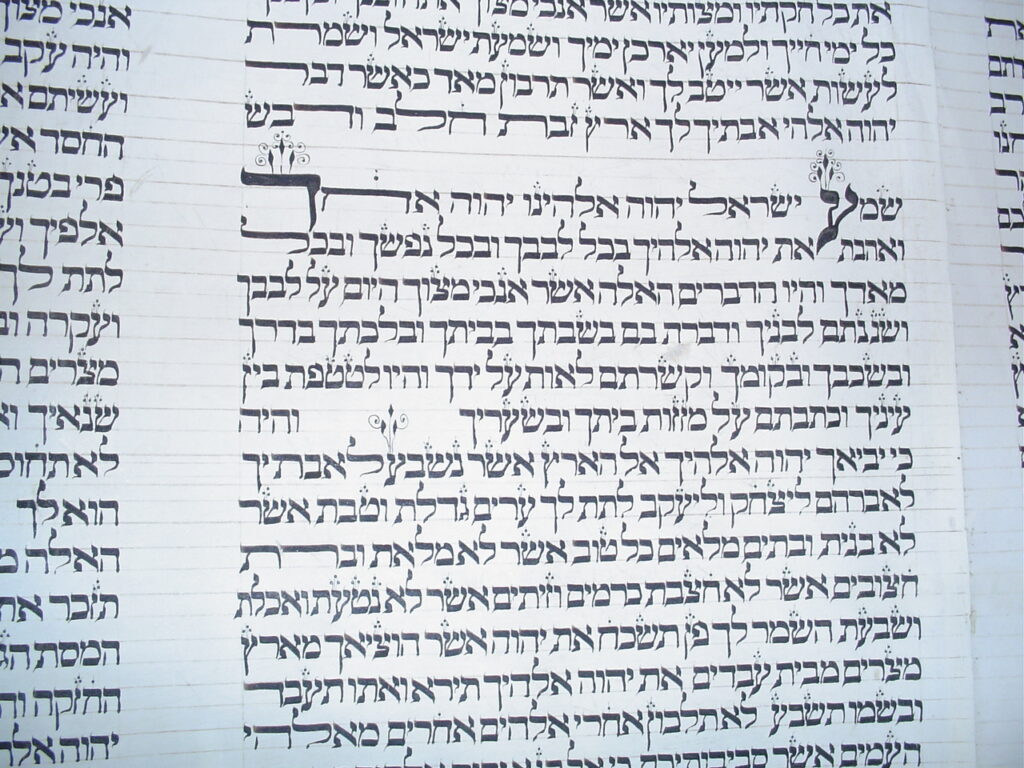 את כל חקתיו ומצותיו אשר אנכי מצוך אתה ובנך ובן בנך
כל ימי חייך ולמען יארכן ימיך ושמעת ישראל ושמרת
לעשות אשר ייטב לך ואשר תרבון מאד כאשר דבר
יהוה אלהי אבתיך לך ארץ זבת חלב ודבש
שמע ישראל יהוה אלהינו יהוה אחד
ואהבת את יהוה אלהיך בכל לבבך ובכל נפשך ובכל
מאדך והיו הדברים האלה אשר אנכי מצוך היום על לבבך
ושננתם לבניך ודברת בם בשבתך בביתך ובלכתך בדרך
ובשכבך ובקומך וקשרתם לאות על ידך והיו לטטפת בין
עיניך וכתבתם על מזזות ביתך ובשעריך והיה
כי יביאך יהוה אלהיך אל הארץ אשר נשבע לאבתיך
לאברהם ליצחק וליעקב לתת לך ערים גדלת וטבת אשר
לא בנית ובתים מלאים כל טוב אשר לא מלאת וברת
חצובים אשר לא חצבת כרמים וזיתים אשר לא נטעת ואכלת
ושבעת השמר לך פן תשכח את יהוה אשר הוציאך מארץ
מצרים מבית עבדים את יהוה אלהיך תירא ואתו תעבד
ובשמו תשבע לא תלכון אחרי אלהים אחרים מאלהי
העמים אשר סביבותיכם כי אל
אנכי מצוך
והיה עקב
ועשיתם
החסד
פרי בטנך
אלפיך
לתת לך
ועקרה
מצרים
שנאיך
לא תחוס
הוא לך
האלה
תזכר את
המסת
החזקה
יהוה